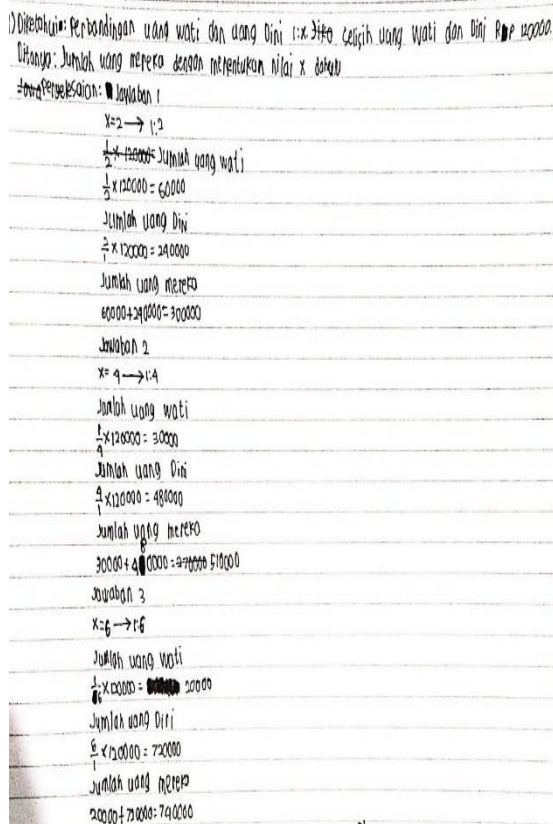 1) Diketahui: Perbandingan uang wati dan uang Dini 1:x Jika selisih uang wati dan Dini Rp 120000.
Ditanya: Jumlah uang mereka dengan menentukan nilai x dahulu
Penyelesaian: Jawaban 1
x=2 → 1:2
1/2 x 120000 = Jumlah uang wati
1/2 x 120000 = 60000
Jumlah uang Dini
2/1 x 120000 = 240000
Jumlah uang mereka
60000+240000=300000
Jawaban 2
x= 4 → 1:4
Jumlah uang wati
1/4 x 120000 = 30000
Jumlah uang Dini
4/1 x 120000 = 480000
Jumlah uang mereka
30000+480000 = 270000 510000
Jawaban 3
x=6 → 1:6
Jumlah uang wati
1/6 x 120000 = 20000
Jumlah uang Dini
6/1 x 120000 = 720000
Jumlah uang mereka
20000+720000=740000